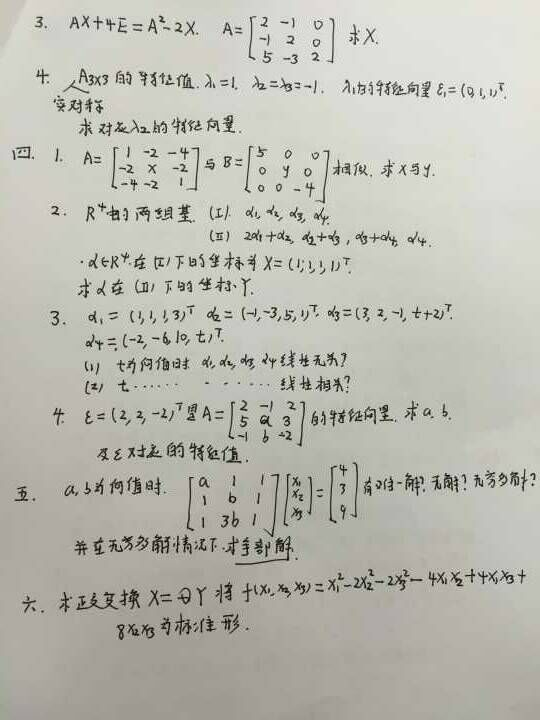 3. AX+4E=A²-2X. A=[2 -1 0; -1 2 0; 5 -3 2] 求X.
4. A3×3的特征值. λ1=1, λ2=λ3=-1. λ1的特征向量ε1=(0,1,1)ᵀ.
实对称
求对应λ2的特征向量.
四. 1. A=[1 -2 -4; -2 x -2; -4 -2 1]与B=[5 0 0; 0 y 0; 0 0 -4]相似. 求x与y.
2. R⁴中的两组基. (I) α1, α2, α3, α4.
(II) 2α1+α2, α2+α3, α3+α4, α4.
·α∈R⁴. 在(I)下的坐标为X=(1,1,1,1)ᵀ.
求α在(II)下的坐标Y.
3. α1=(1,1,1,3)ᵀ α2=(-1,-3,5,1)ᵀ. α3=(3,2,-1,t+2)ᵀ.
α4=(-2,-6,10,t)ᵀ.
(1) t为何值时 α1,α2,α3,α4线性无关?
(2) t............线性相关?
4. ε=(2,2,-2)ᵀ是A=[2 -1 2; 5 a 3; -1 b -2]的特征向量. 求a.b.
及ε对应的特征值.
五. a,b为何值时. [a 1 1; 1 b 1; 1 3b 1][x1; x2; x3]=[4; 3; 9]有唯一解?无解?无穷多解?
并在无穷多解情况下求全部解.
六. 求正交变换X=QY将f(x1,x2,x3)=x1²-2x2²-2x3²-4x1x2+4x1x3+
8x2x3为标准形.